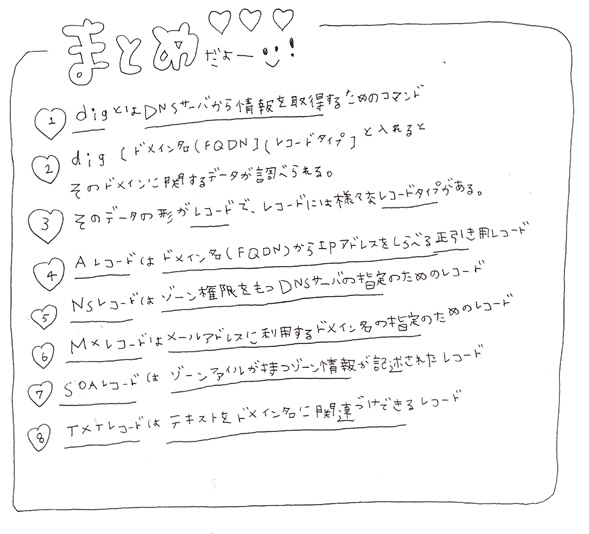 まとめだよー!
1 digとはDNSサーバから情報を取得するためのコマンド
2 dig [ドメイン名(FQDN] [レコードタイプ] と入れると
そのドメインに関するデータが調べられる。
3 そのデータの形がレコードで、レコードには様々なレコードタイプがある。
4 Aレコードはドメイン名(FQDN)からIPアドレスをしらべる正引き用レコード
5 NSレコードはゾーン権限をもつDNSサーバの指定のためのレコード
6 MXレコードはメールアドレスに利用するドメイン名の指定のためのレコード
7 SOAレコードはゾーンファイルが持つゾーン情報が記述されたレコード
8 TXTレコードはテキストをドメイン名に関連づけできるレコード